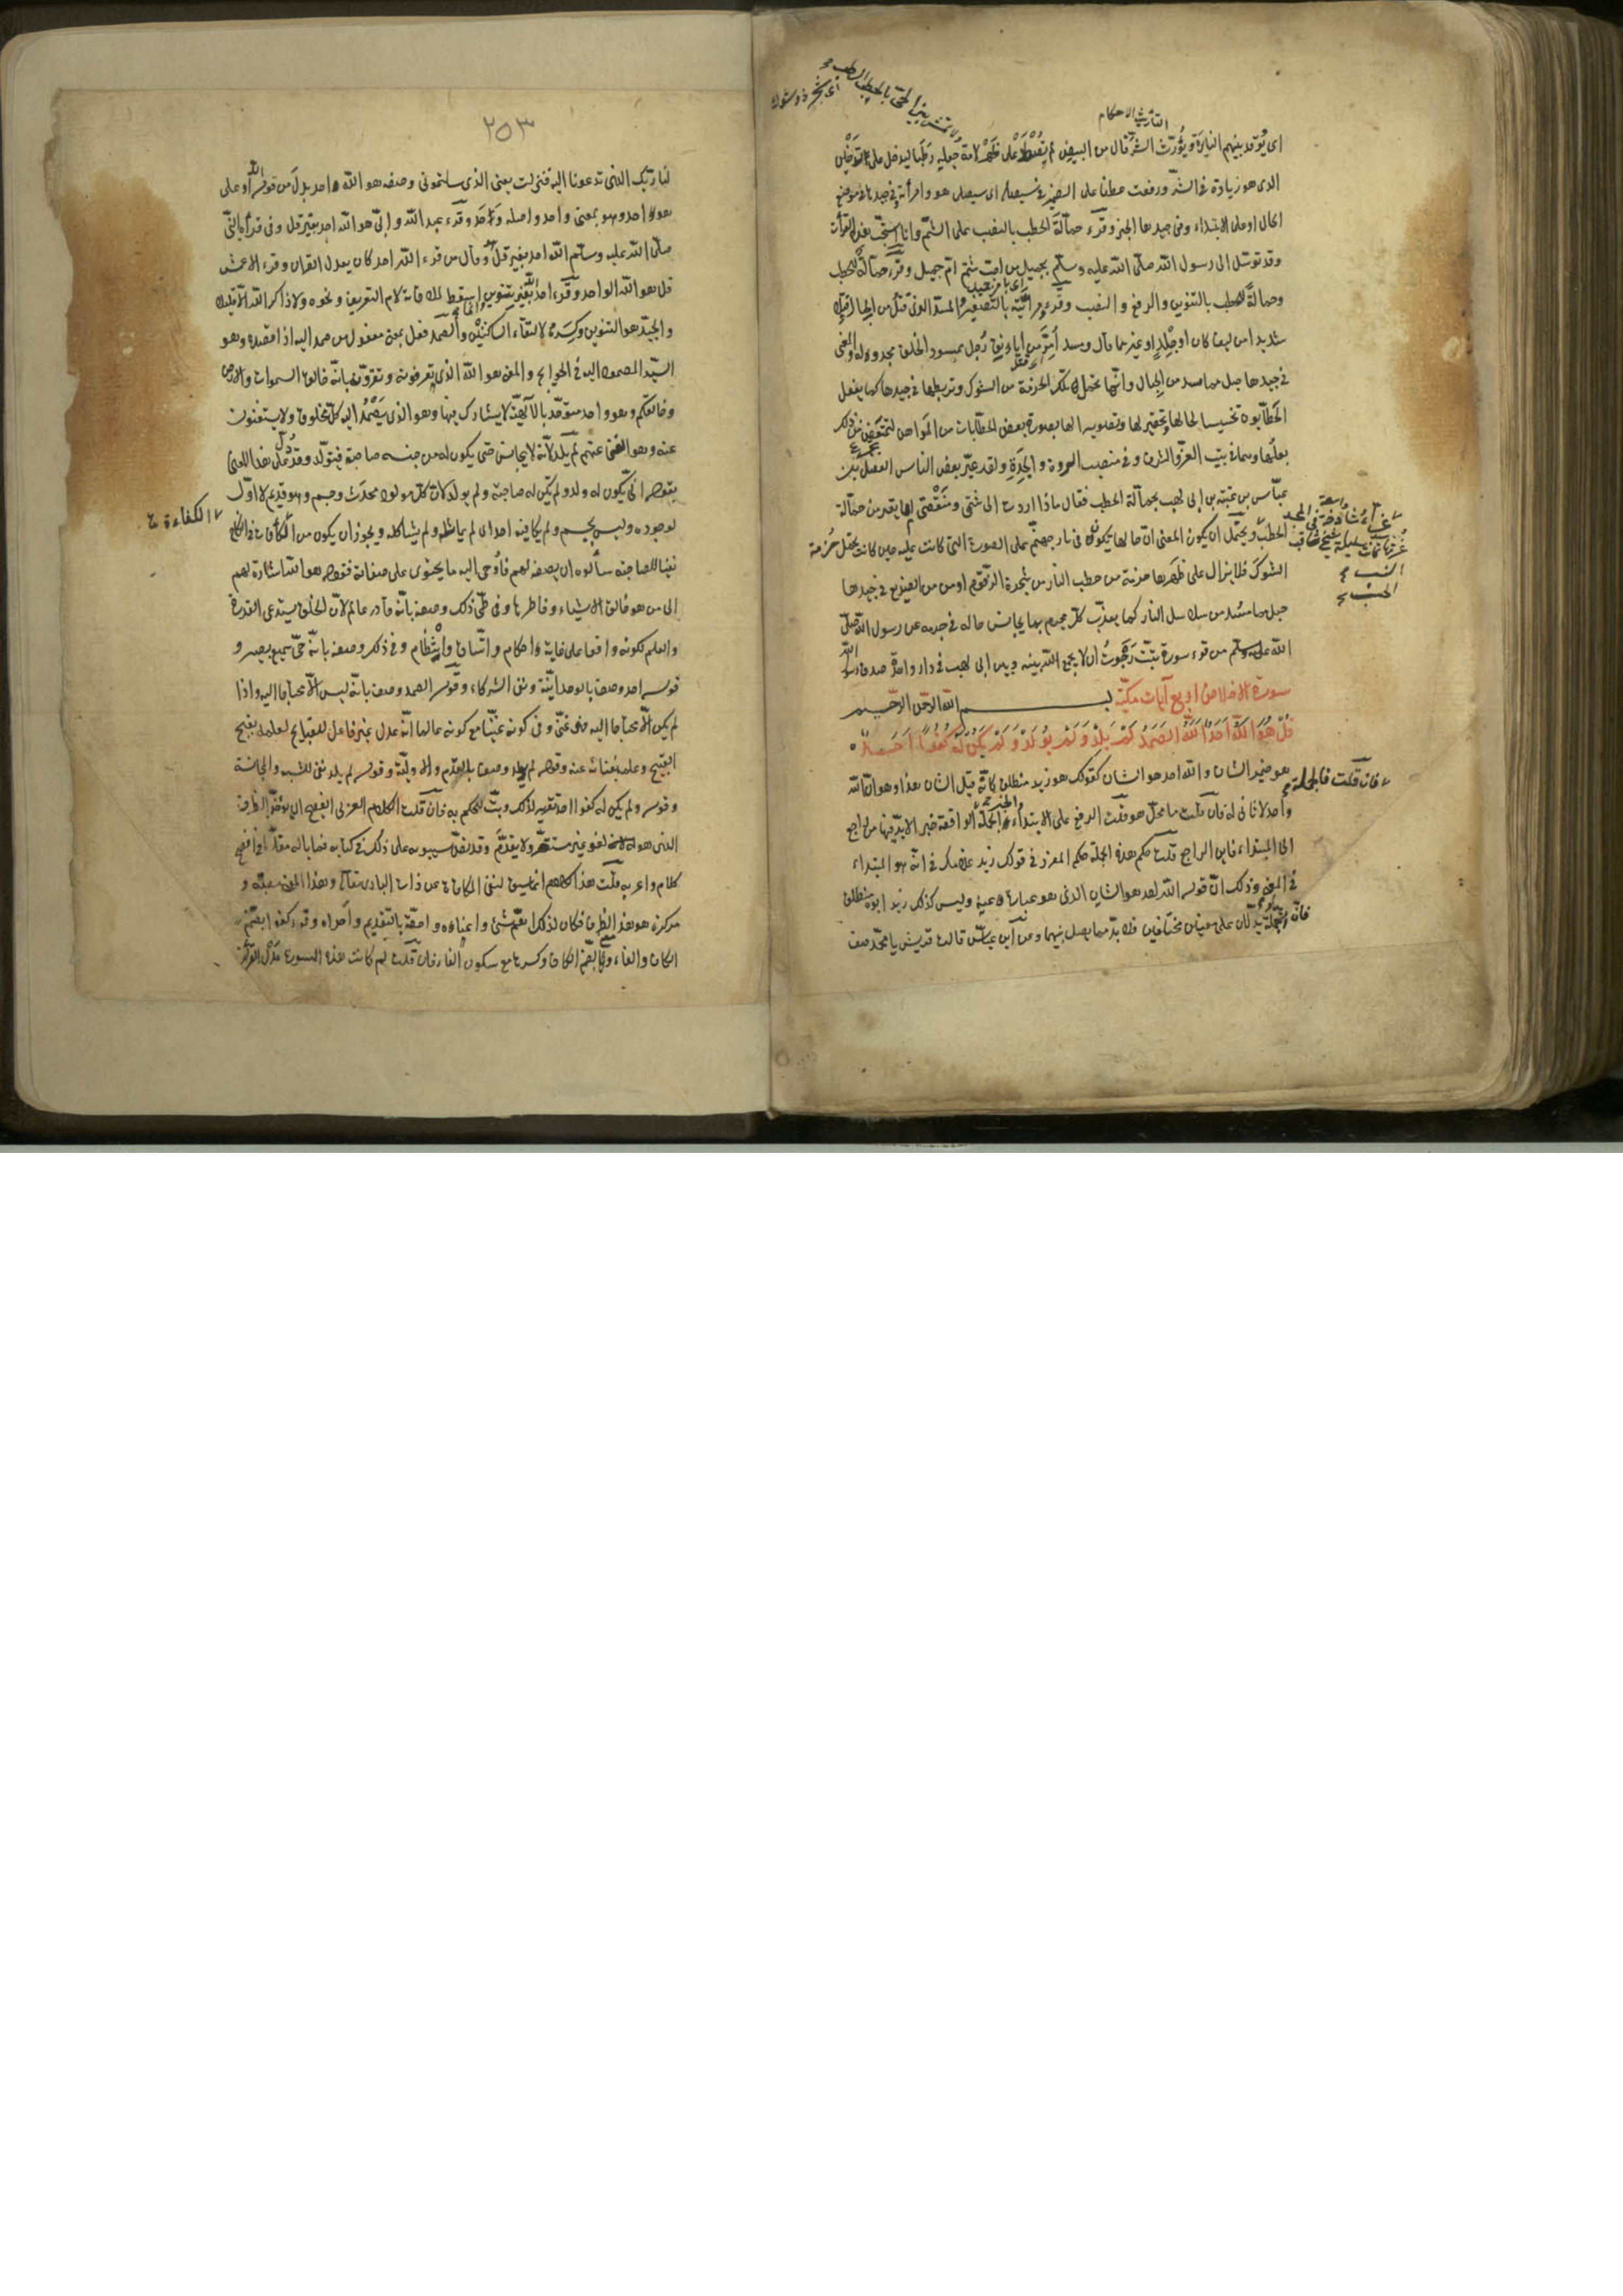 التأريث الاحكام
اى يوقد بينهم النايرة ويؤرث الشر قال من البيض لم تصطد على ظهر لامة ولم تمش بين الحى بالحطب الرطب جعله رطبا ليدل على التدخين
الذى هو زيادة فى الشر ورفعت عطفا على الضمير فى سيصلى اى سيصلى هو وامرأته وفى جيدها فى موضع
الحال او على الابتداء وفى جيدها الخبر وقرء حمالة الحطب بالنصب على الشتم وانا استحب هذه القراءة
وقد توسل الى رسول الله صلى الله عليه وسلم بجميل من احب شتم ام جميل وقرء حمالة للحطب
وحمالة للحطب بالتنوين والرفع والنصب وقرء ومريئته بالتصغير المسد الذى فتل من الحبال فتلا
شديدا من ليف كان او جلد او غيرهما قال ومسد امر من ايانق ورجل ممسود الخلق مجدوله والمعنى
فى جيدها حبل مما مسد من الحبال وانها تحمل تلك الحزمة من الشوك وتربطها فى جيدها كما يفعل
الحطابون تخسيسا لحالها وتحقيرا لها وتصويرا لها بصورة بعض الحطابات من المواهن لتمتعض من ذلك
بعلها وهما فى بيت العز والشرف وفى منصب الثروة والجدة ولقد عير بعض الناس الفضل بن
عباس بن عتبة بن ابى لهب بحمالة الحطب فقال ماذا اردت الى شتمى ومنقصتى ام ما تعير من حمالة
الحطب ويحتمل ان يكون المعنى ان حالها يكون فى نار جهنم على الصورة التى كانت عليه حين كانت تحمل حزمة
الشوك فلا يزال على ظهرها حزمة من حطب النار من شجرة الزقوم او من الضريع وفى جيدها
حبل مما مسد من سلاسل النار كما يعذب كل مجرم بما يجانس حاله فى جرمه عن رسول الله صلى
الله عليه وسلم من قرء سورة تبت رجوت ان لا يجمع الله بينه وبين ابى لهب فى دار واحدة صدق رسول الله
سورة الاخلاص اربع آيات مكية بسم الله الرحمن الرحيم
قل هو الله احد الله الصمد لم يلد ولم يولد ولم يكن له كفوا احد
هو ضمير الشان والله احد هو الشان كقولك هو زيد منطلق كانه قيل الشان هذا وهو ان الله
واحد لا ثانى له فان قلت ما محل هو قلت الرفع على الابتداء والخبر الجملة فان قلت فالجملة الواقعة خبرا لا بد فيها من راجع
الى المبتداء فاين الراجع قلت حكم هذه الجملة حكم المفرد فى قولك زيد غلامك فى انه هو المبتداء
فى المعنى وذلك ان قوله الله احد هو الشان الذى هو عبارة عنه وليس كذلك زيد ابوه منطلق
فان زيدا والجملة يدلان على معنيين مختلفين فلا بد مما يصل بينهما وعن ابن عباس قالت قريش يا محمد صف
٢٥٣
لنا ربك الذى تدعونا اليه فنزلت يعنى الذى سألتمونى وصفه هو الله واحد بدل من قوله الله او على
هو احد وهو بمعنى واحد واصله وحد وقرء عبد الله وابى هو الله احد بغير قل وفى قراءة النبى
صلى الله عليه وسلم الله احد بغير قل هو وقال من قرء الله احد كان يعدل القران وقرء الاعمش
قل هو الله الواحد وقرء احد الله بغير تنوين اسقط لملاقاته لام التعريف ونحوه ولا ذاكر الله الا قليلا
والجيد هو التنوين وكسره لالتقاء الساكنين والصمد فعل بمعنى مفعول من صمد اليه اذا قصده وهو
السيد المصمود اليه فى الحوائج والمعنى هو الله الذى تعرفونه وتقرون بانه خالق السموات والارض
وخالقكم وهو واحد متوحد بالالهية لا يشارك فيها وهو الذى يصمد اليه كل مخلوق ولا يستغنون
عنه وهو الغنى عنهم لم يلد لانه لا يجانس حتى يكون له من جنسه صاحبة فيتوالد وقد دل على هذا المعنى
بقوله انى يكون له ولد ولم تكن له صاحبة ولم يولد لان كل مولود محدث وجسم وهو قديم لا اول
لوجوده وليس بجسم ولم يكافيه احد اى لم يماثله ولم يشاكله ويجوز ان يكون من الكفاءة فى النكاح
نفيا للصاحبة سألوه ان يصفه لهم فأوحى اليه ما يحتوى على صفاته فقوله هو الله اشارة لهم
الى من هو خالق الاشياء وفاطرها وفى طى ذلك وصفه بانه قادر عالم لان الخلق يستدعى القدرة
والعلم لكونه واقعا على غاية احكام واتساق وانتظام وفى ذلك وصفه بانه حى سميع بصير و
قوله احد وصف بالوحدانية ونفى الشركاء وقوله الصمد وصف بانه ليس الا محتاجا اليه واذا
لم يكن الا محتاجا اليه فهو غنى وفى كونه غنيا مع كونه عالما انه عدل غير فاعل للقبايح لعلمه بقبح
القبيح وعلمه بغناه عنه وقوله لم يولد وصف بالقدم والاولية وقوله لم يلد نفى للشبه والمجانسة
وقوله ولم يكن له كفوا احد تقرير لذلك وبت للحكم به فان قلت الكلام العربى الفصيح ان يؤخر الظرف
الذى هو لغو غير مستقر ولا يقدم وقد نص سيبويه على ذلك فى كتابه فما باله مقدما فى افصح
كلام واعربه قلت هذا الكلام انما سيق لنفى المكافاة عن ذات البارى تعالى وهذا المعنى مصبه و
مركزه هو هذا الظرف فكان لذلك اهم شىء واعناه واحقه بالتقديم واحراه وقرء كفوا بضم
الكاف والفاء وبضم الكاف وكسرها مع سكون الفاء فان قلت لم كانت هذه السورة عدل القران